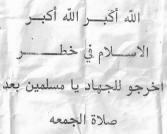 الله أكبر الله أكبر
الاسلام في خطر
اخرجو للجهاد يا مسلمين بعد
صلاة الجمعه